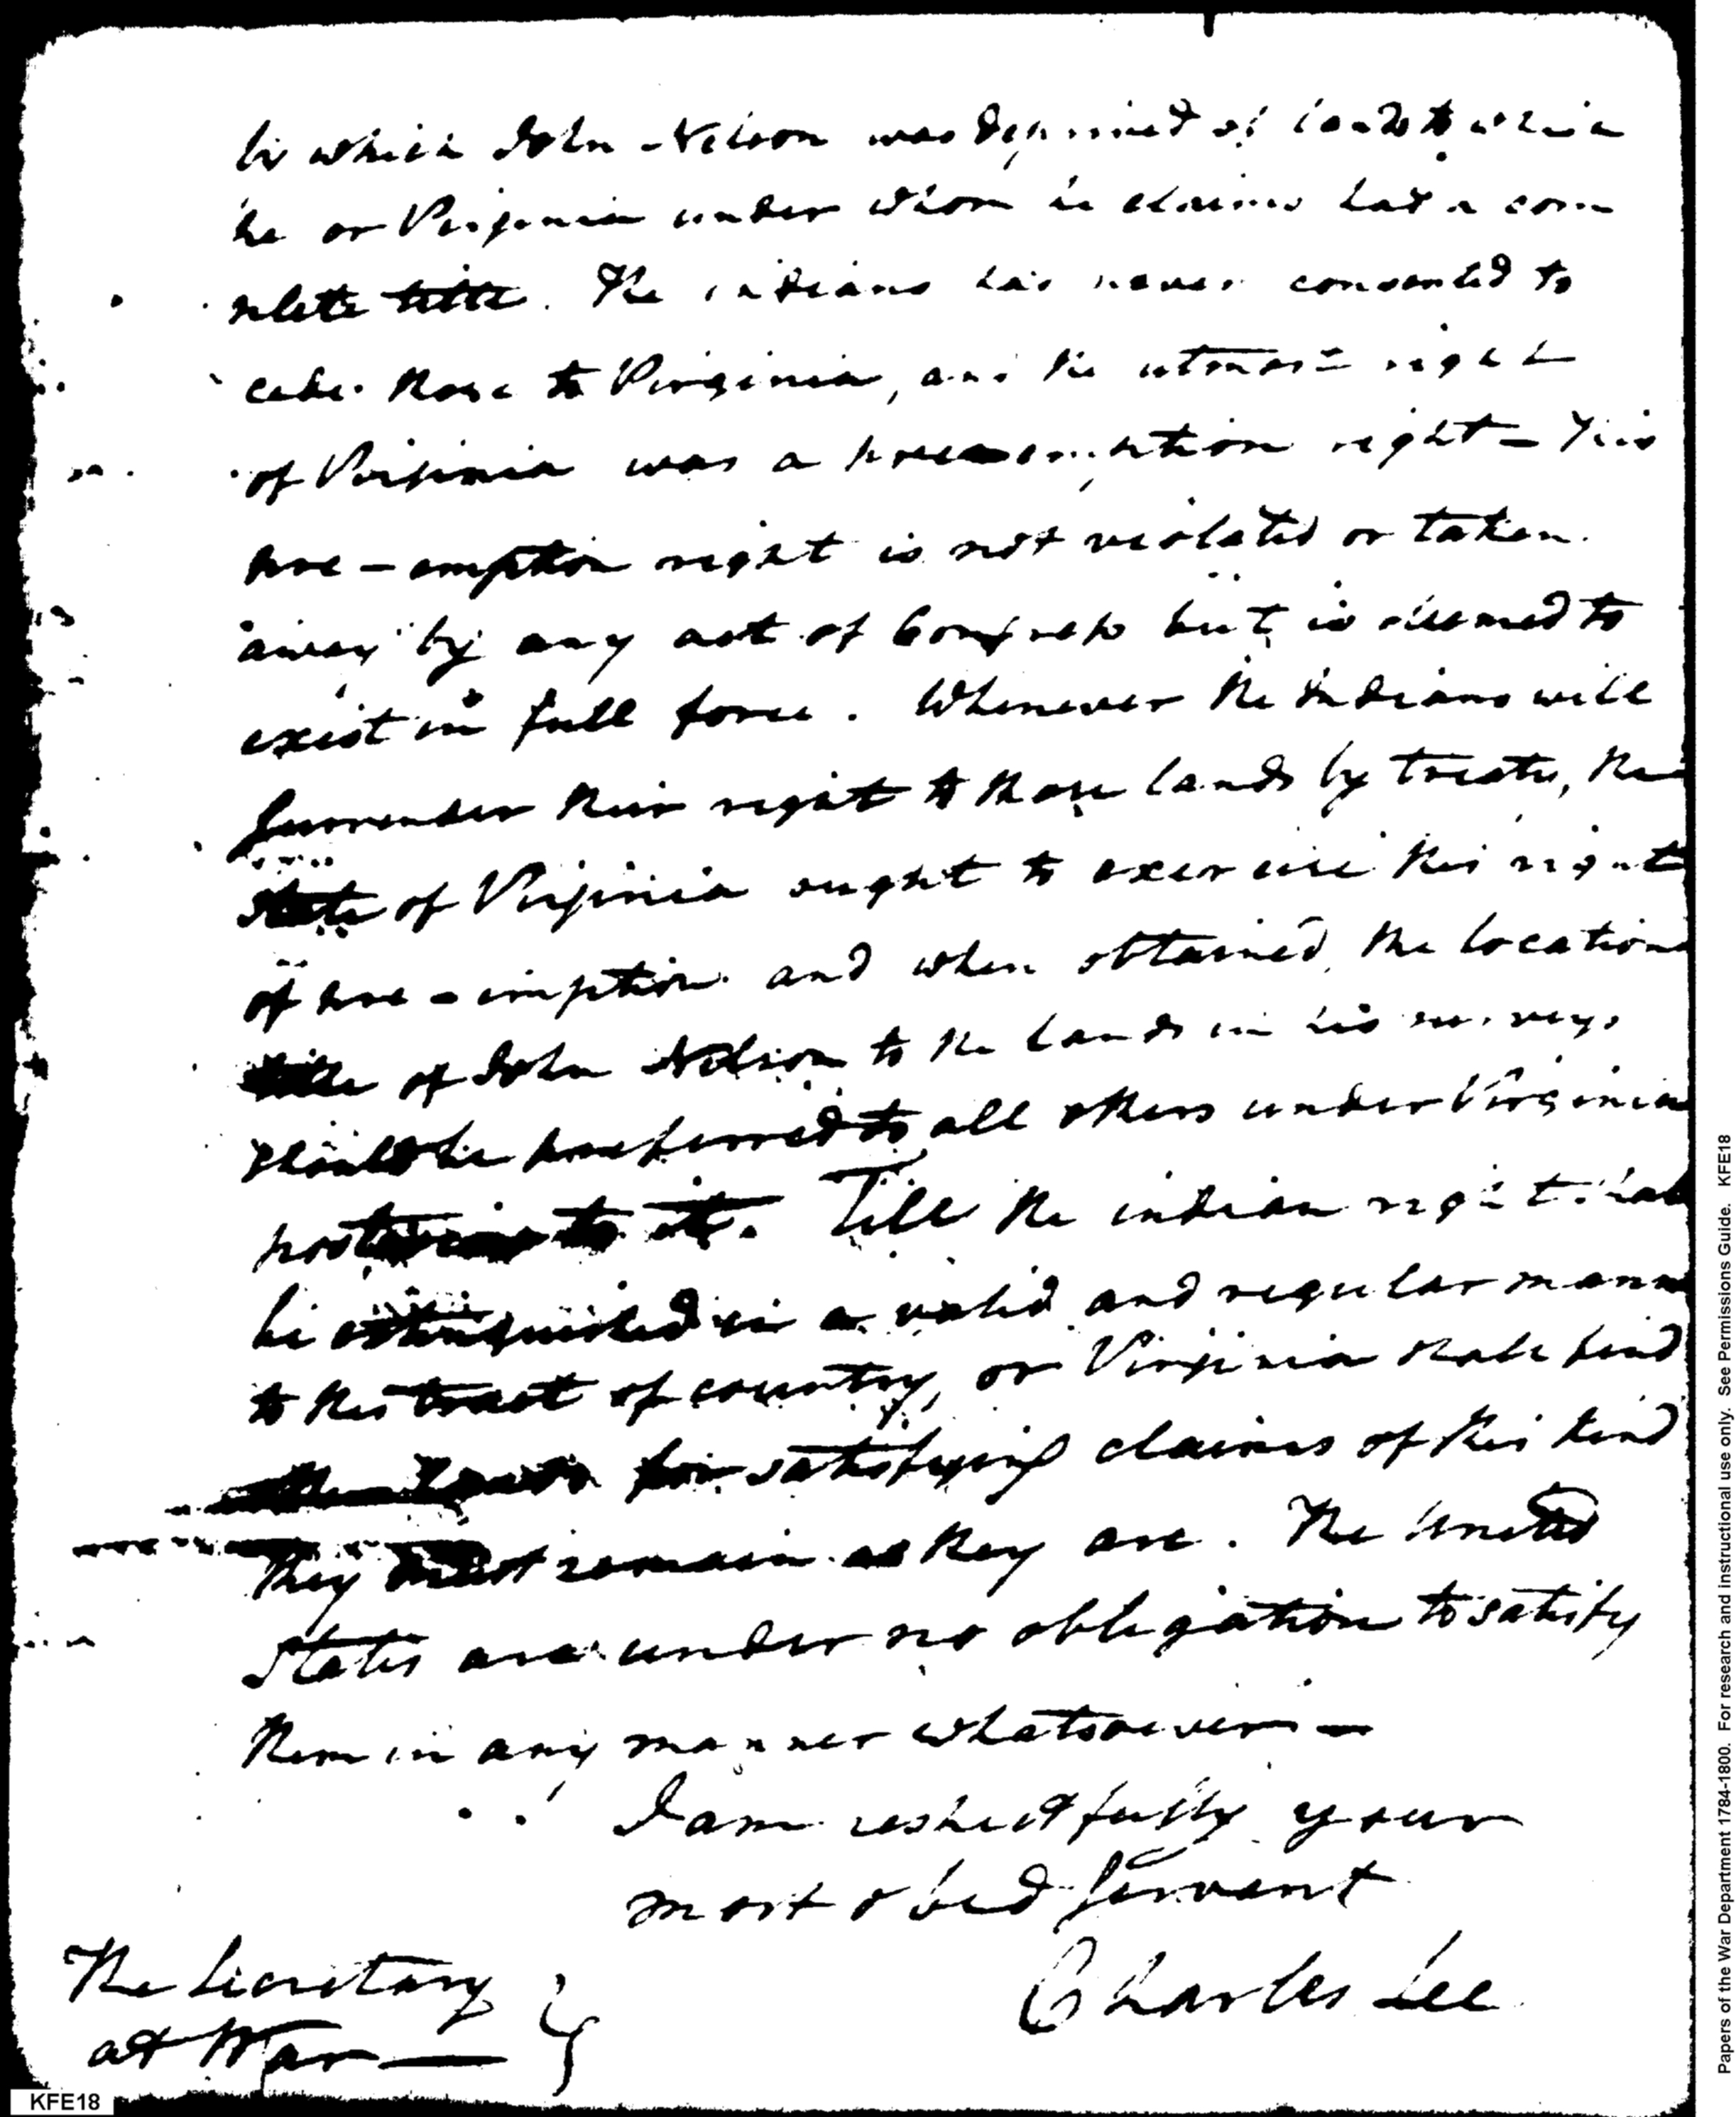 by which John Nelson was deprived of lands to which
he or Virginia under whom he claims had a com
plete title. The indians has never consented to
cede those to Virginia, and the utmost right
of Virginia was a preemption right – This
pre-emption right is not violated or taken
away by any act of Congress but is deemed to
exist in full force. Whenever the Indians will
surrender their right to those lands by treaty, the
state of Virginia ought to exercise this right
of pre-emption and when obtained, the location
title of John Nelson to the lands in his surveys
should be preferred to all others under Virginia
posterior to it. Till the indian right shall
be extinguished in a valid and regular mann
to this tract of country, or Virginia shall find
other for satisfying claims of this kind
They must remain as they are. The United
States are under no obligation to satisfy
them in any manner whatsoever –
I am respectfully your
most obed servant
Charles Lee
The Secretary
at War —
KFE18
Papers of the War Department 1784-1800. For research and instructional use only. See Permissions Guide. KFE18